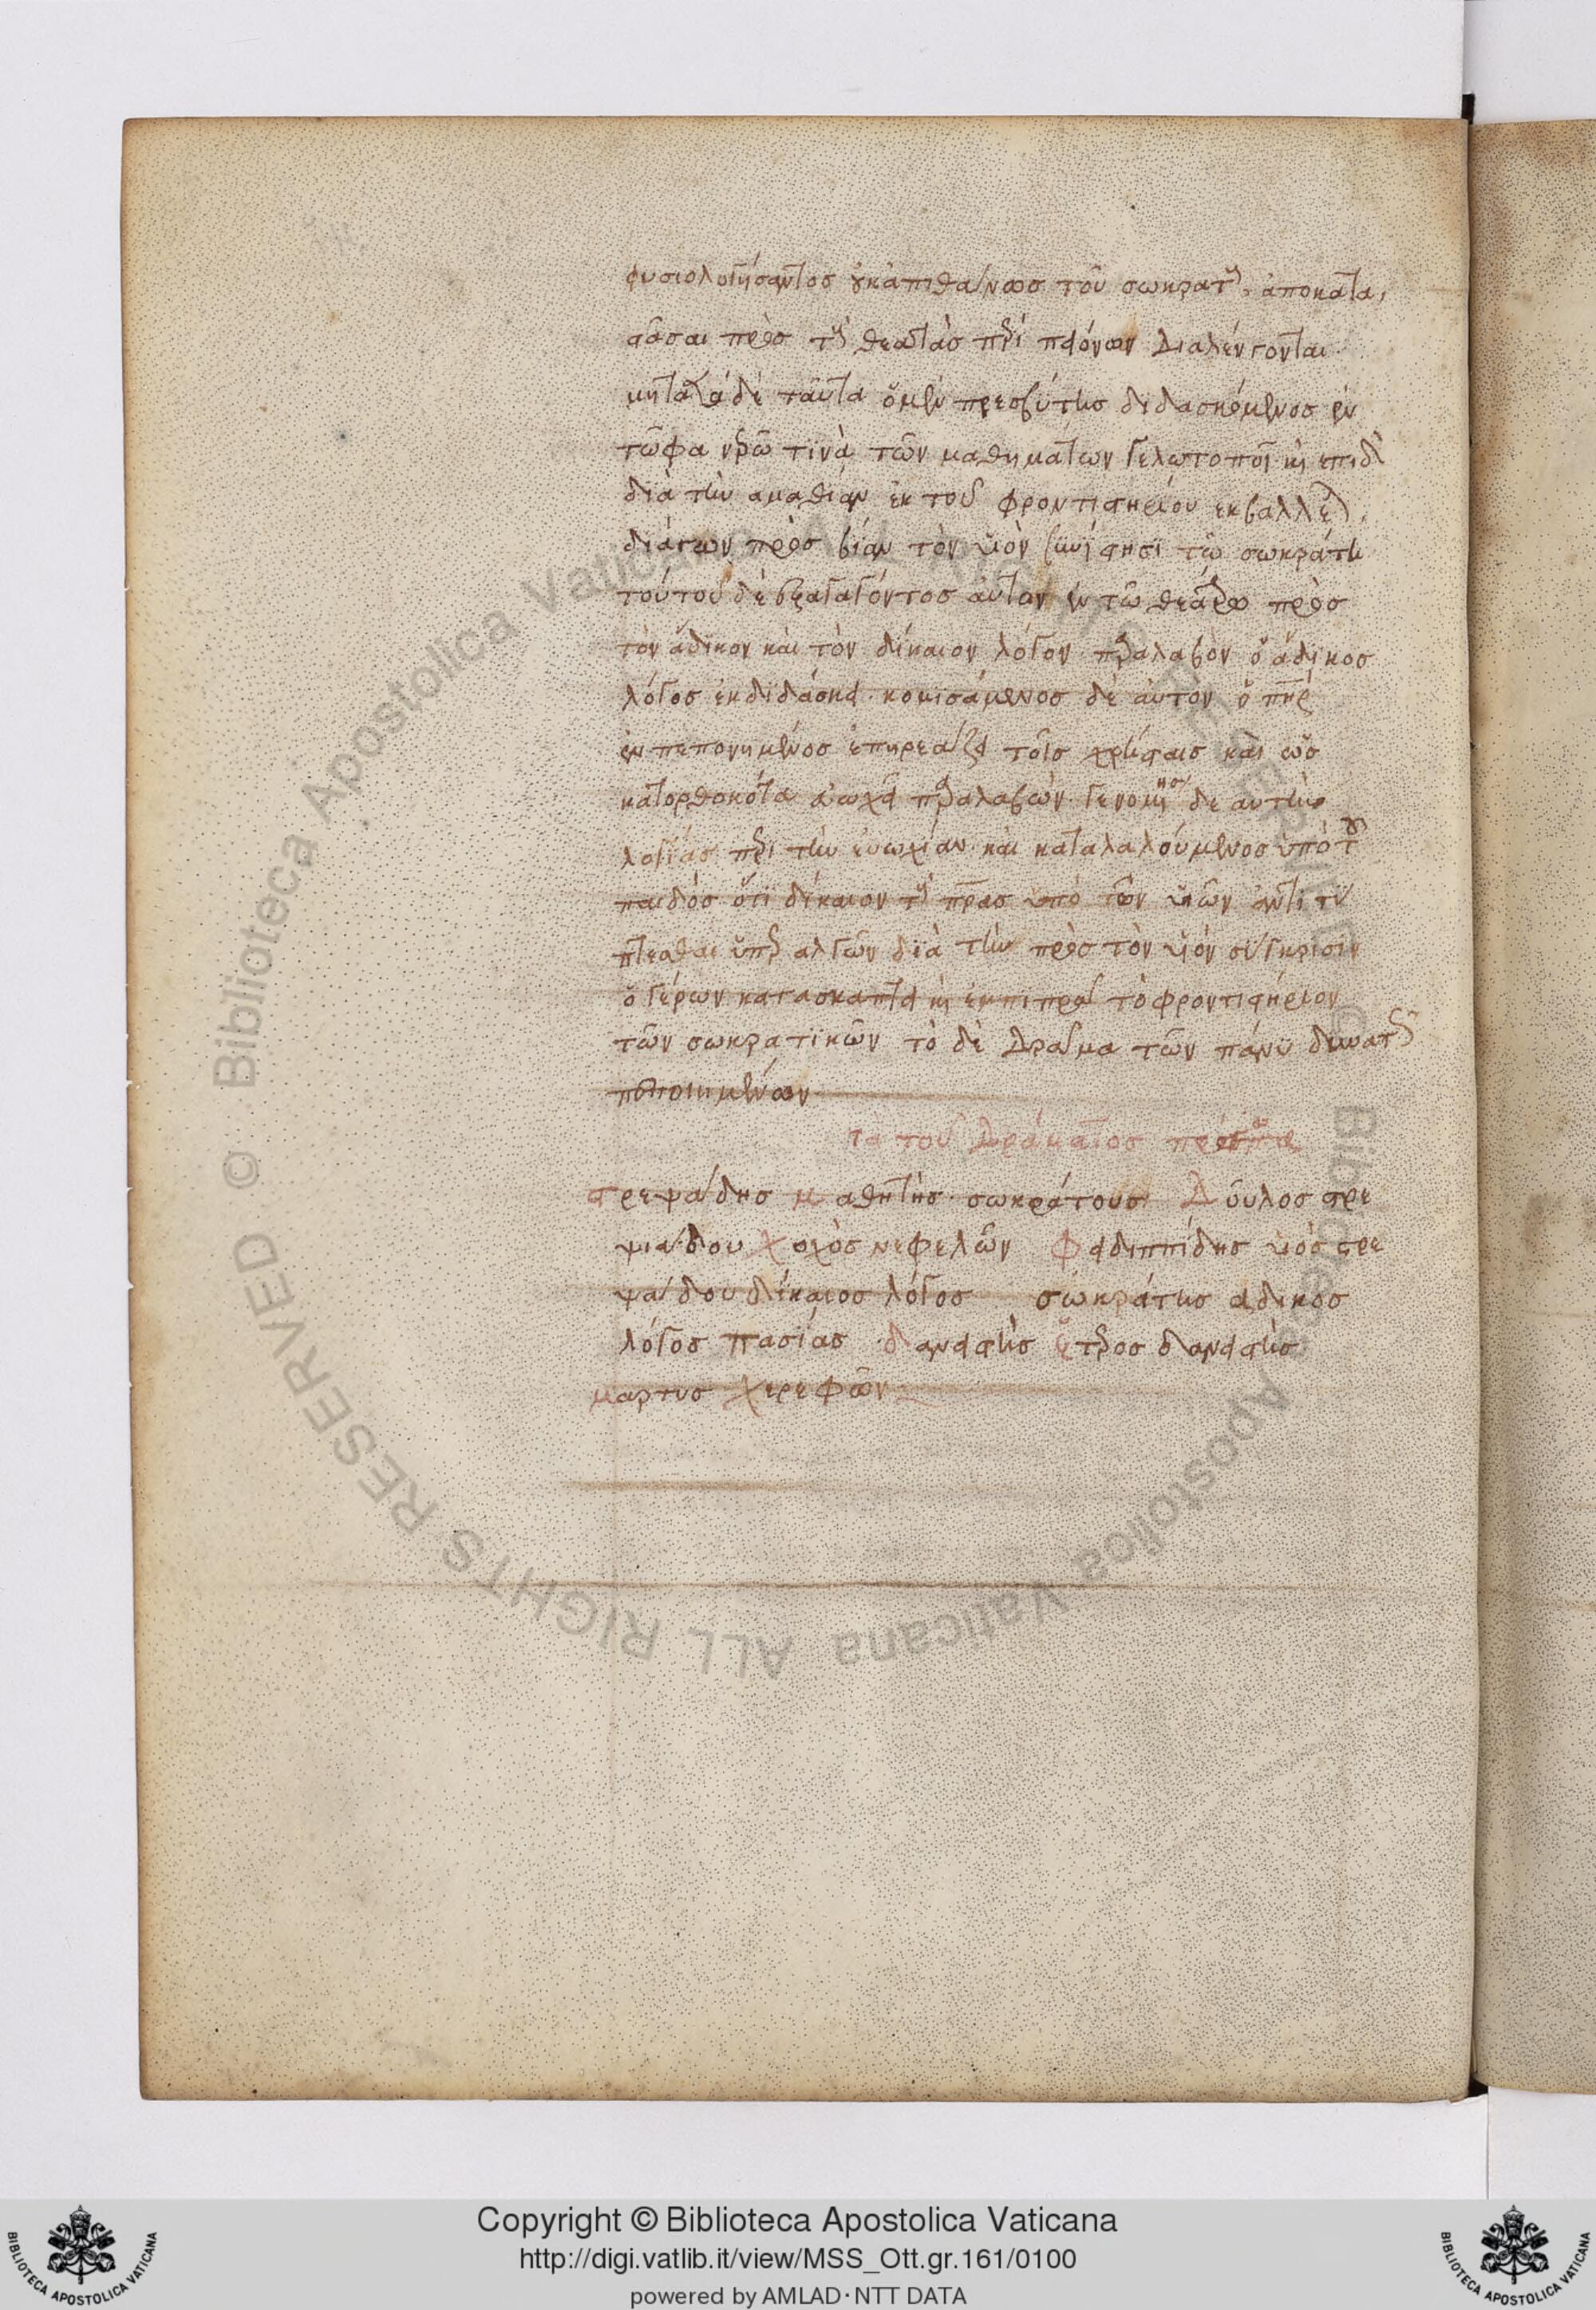 φυσιολογήσαντος οὐκ ἀπιθάνως τοῦ σωκράτους. ἀποκατα
στᾶσαι πρὸς τοὺς θεατὰς περὶ πλειόνων διαλέγονται.
μεταξὺ δὲ ταῦτα ὁ μὲν πρεσβύτης διδασκόμενος ἐν
τῶ φανερῶ τινὰ τῶν μαθημάτων γελωτοποιεῖ καὶ ἐπειδὴ
διὰ τὴν ἀμαθίαν ἐκ τοῦ φροντιστηρίου ἐκβάλλεται,
ἄγων πρὸς βίαν τὸν υἱὸν συνίστησι τῶ σωκράτη
τούτου δὲ ἐξαγαγόντος αὐτὸν ἐν τῶ θεάτρω πρὸς
τὸν ἄδικον καὶ τὸν δίκαιον λόγον παραλαβὸν ὁ ἄδικος
λόγος ἐκδιδάσκει. κομισάμενος δὲ αὐτον ὁ πηρ
πεπονημένος ἐπηρεάζει τοῖς χρήσταις καὶ ὡς
κατορθοκότα εὐωχεῖ παραλαβών. γενομένης δὲ ἀντι
λογίας περὶ τὴν εὐωχίαν καὶ καταλαλούμενος ὑπὸ τοῦ
παιδὸς ὅτι δίκαιον τοὺς πρας ὑπὸ τῶν υἱῶν ἀντιτύ
πτεσθαι ὑπεραλγῶν διὰ τὴν πρὸς τὸν υἱὸν σύγκρισιν
ὁ γέρων κατασκάπτει καὶ ἐμπιπρᾶ τὸ φροντιστήριον
τῶν σωκρατικῶν τὸ δὲ δρᾶμα τῶν πάνυ δυνατῶς
πεποιημένων
τὰ τοῦ δράματος πρόσωπα
στρεψιάδης μαθητὴς σωκράτους Δοῦλος στρε
ψιάδου χορὸς νεφελῶν Φειδιππίδης υἱὸς στρε
ψιάδου δίκαιος λόγος σωκράτης ἄδικος
λόγος πασίας δανειστὴς ἕτερος δανειστὴς
μαρτυς χερεφῶν
Copyright © Biblioteca Apostolica Vaticana
http://digi.vatlib.it/view/MSS_Ott.gr.161/0100
powered by AMLAD·NTT DATA
BIBLIOTECA APOSTOLICA VATICANA
BIBLIOTECA APOSTOLICA VATICANA
© Biblioteca Apostolica Vaticana ALL RIGHTS RESERVED © Biblioteca Apostolica Vaticana ALL RIGHTS RESERVED